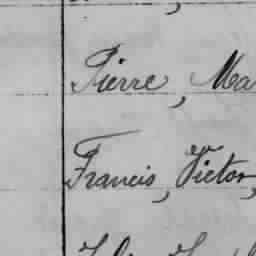 Pierre, Ma
Francis, Victor,